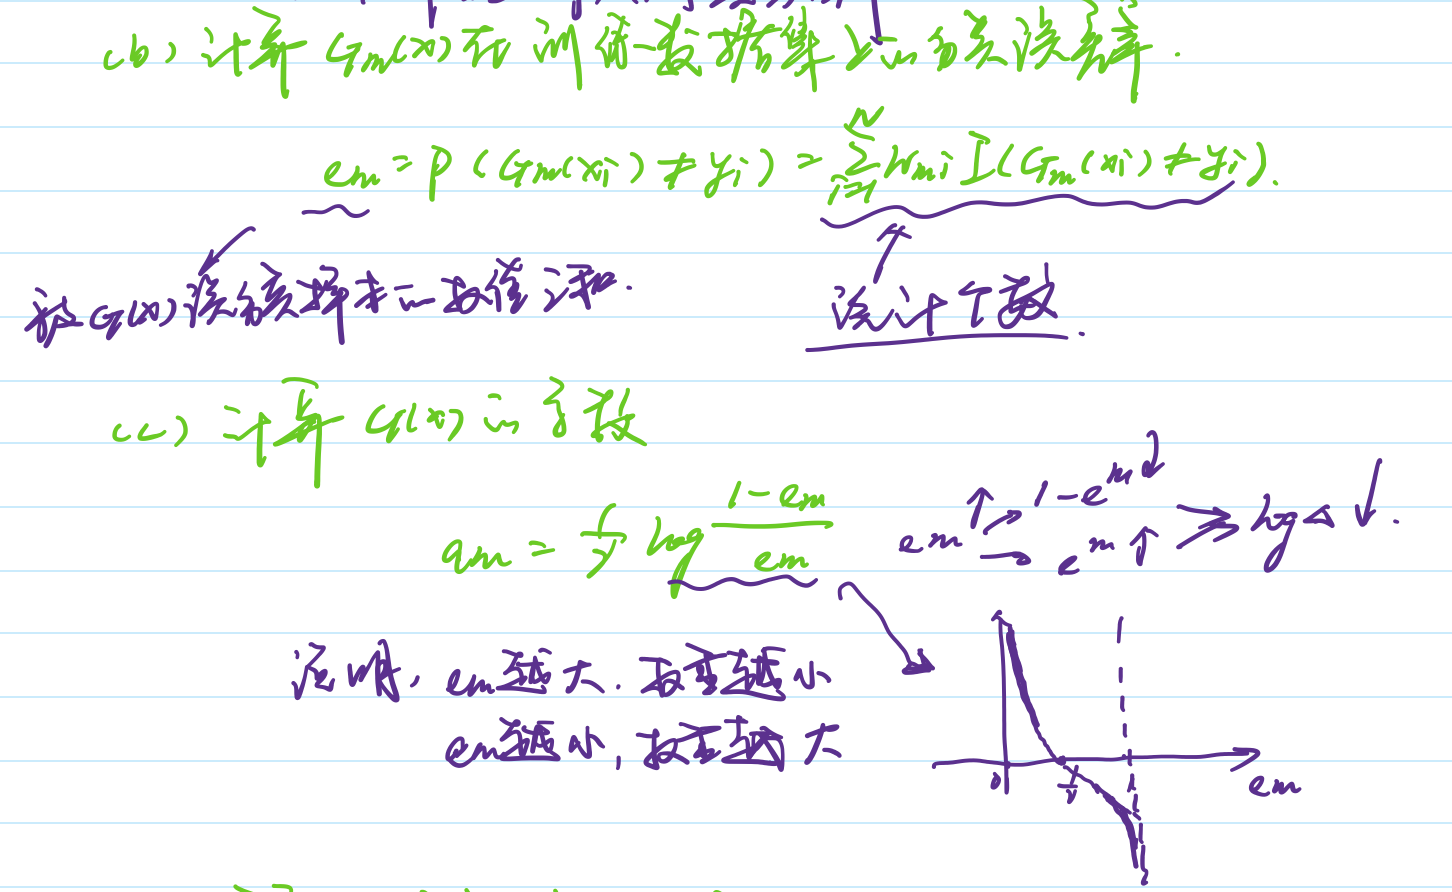 (b) 计算 Gm(x) 在训练数据集上的分类误差率.
em = P(Gm(xi) ≠ yi) = Σ_{i=1}^{N} Wmi I(Gm(xi) ≠ yi).
被G(x)误分类样本的权值之和.
统计个数.
(c) 计算 G(x) 的系数
am = 1/2 log (1-em)/em
em↑ → 1-em↓
→ em↑ ⇒ log↓.
说明, em越大. 权重越小
em越小, 权重越大
0 1/2 1 em